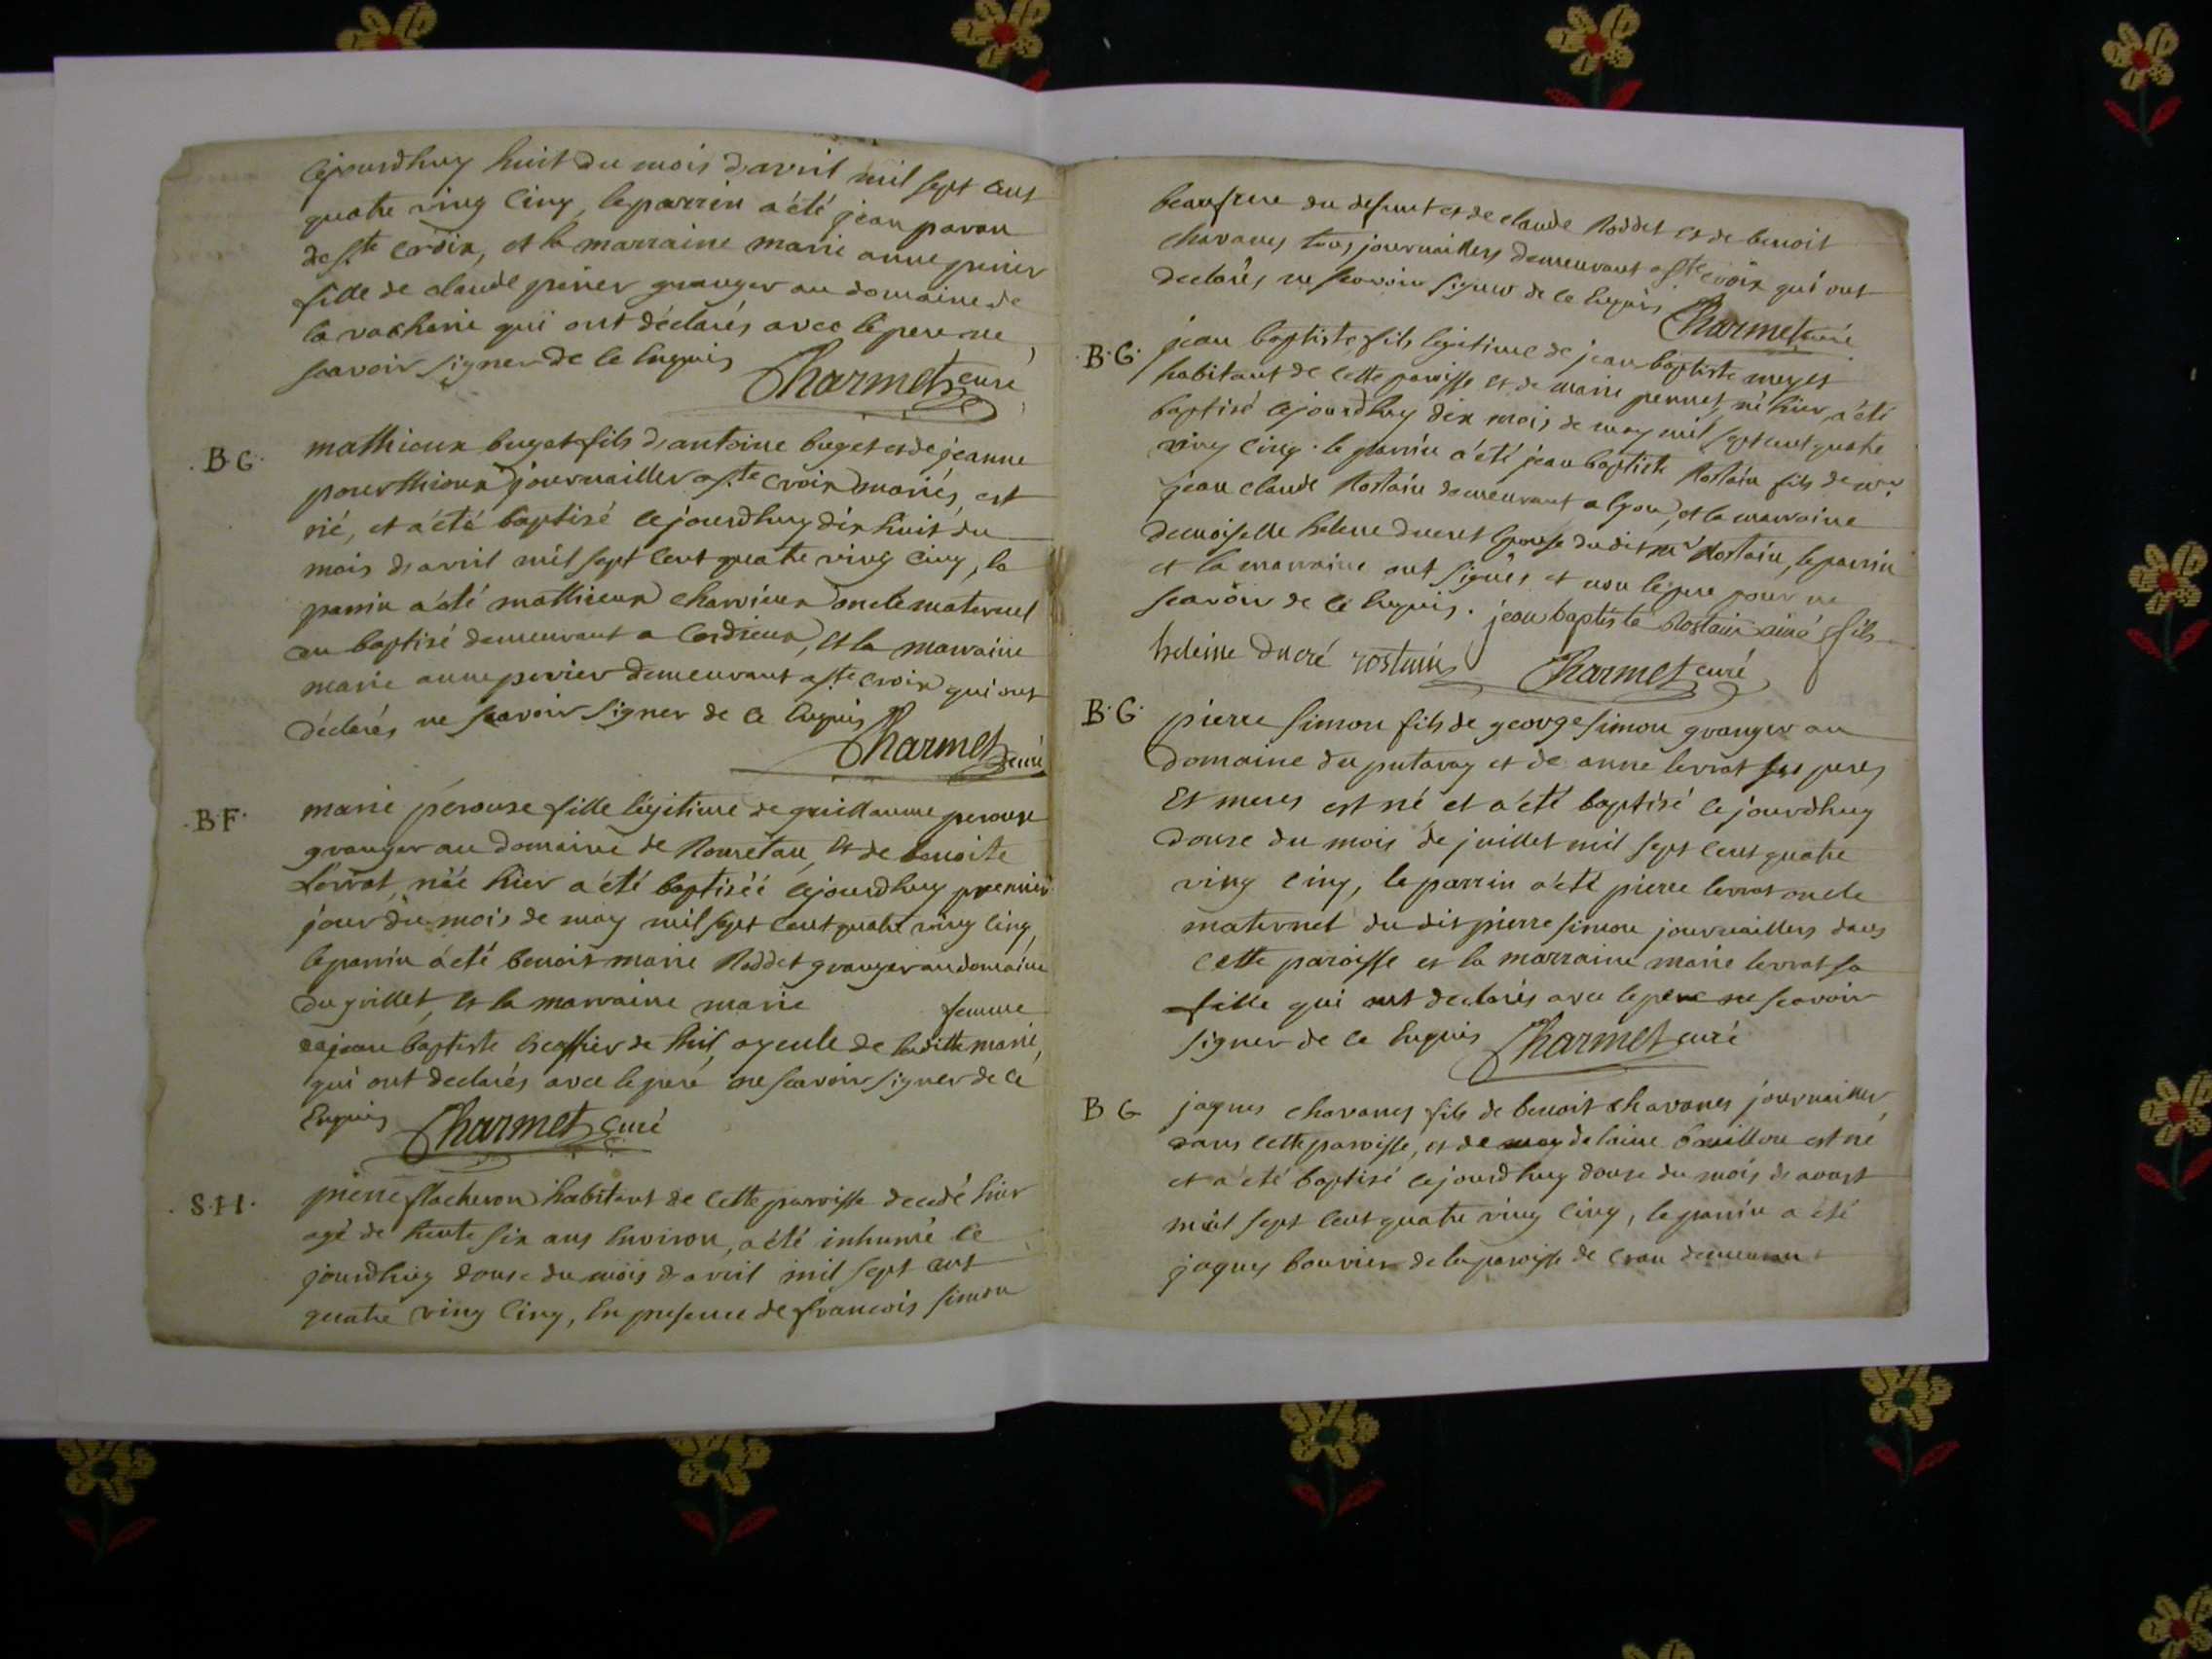 cejourdhuy huit du mois d'avril mil sept cent
quatre ving cinq, le parrin a été jean pavan
de ste croix, et la marraine marie anne perier
fille de claude perier granger au domaine de
la vacherie qui ont déclarés avec le pere ne
scavoir signer de ce enquis Charmet curé
B.G. mathieux buget fils d'antoine buget et de jeanne
pourthioux journaillier a ste croix mariés, est
né, et a été baptisé cejourdhuy dix huit du
mois d'avril mil sept cent quatre ving cinq, le
parrin a été mathieux charvieux oncle maternel
au baptisé demeurant a cordieux, et la marraine
marie anne perier demeurant a ste croix qui ont
déclarés ne scavoir signer de ce enquis Charmet curé
B.F. marie perouse fille légitime de guillaume perouse
granger au domaine de Rouretau, et de benoite
Levrat, née hier a été baptiséé cejourdhuy premier
jour du mois de may mil sept cent quatre ving cinq,
le parrin a été benoit marie Roddet granger au domaine
du grillet, et la marraine marie femme
a jean baptiste de thil, ayeule de laditte marie,
qui ont declarés avec le peré ne scavoir signer de ce
Enquis Charmet curé
S.H. pierre flacheron habitant de cette paroisse decedé hier
agé de trente six ans environ, a été inhumé ce
jourdhuy douse du mois d'avril mil sept cent
quatre ving cinq, en presence de francois simon
beaufrere du defunt et de claude Roddet et de benoit
chavanes tous journailliers demeurant a ste croix qui ont
declarés ne scavoir signer de ce enquis Charmet curé
B.G. jean baptiste fils légitime de jean baptiste
habitant de cette paroisse et de marie pernet, né hier, a été
baptisé cejourdhuy dix mois de may mil sept cent quatre
ving cinq. le parrin a été jean baptiste Rostain fils de mr
jean claude Rostain demeurant a lyon, et la marraine
demoiselle helene ducret epouse dudit mr Rostain, le parrin
et la marraine ont signés et non le pere pour ne
scavoir de ce enquis. jean baptiste Rostain ainé fils
heleine ducré rostain Charmet curé
B.G. pierre simon fils de george simon granger au
domaine du putavay et de anne levrat ses peres
Et meres est né et a été baptisé cejourdhuy
douse du mois de juillet mil sept cent quatre
ving cinq, le parrin a été pierre levrat oncle
maternel du dit pierre simon journailliers dans
cette paroisse et la marraine marie levrat sa
fille qui ont declarés avec le pere ne scavoir
signer de ce enquis Charmet curé
B G jaques chavanes fils de benoit chavanes journaillier
dans cette paroisse, et de magdelaine est né
et a été baptisé cejourdhuy douse du mois d'aoust
mil sept cent quatre ving cinq, le parrin a été
jaques bouvier de la paroisse de cran demeurant